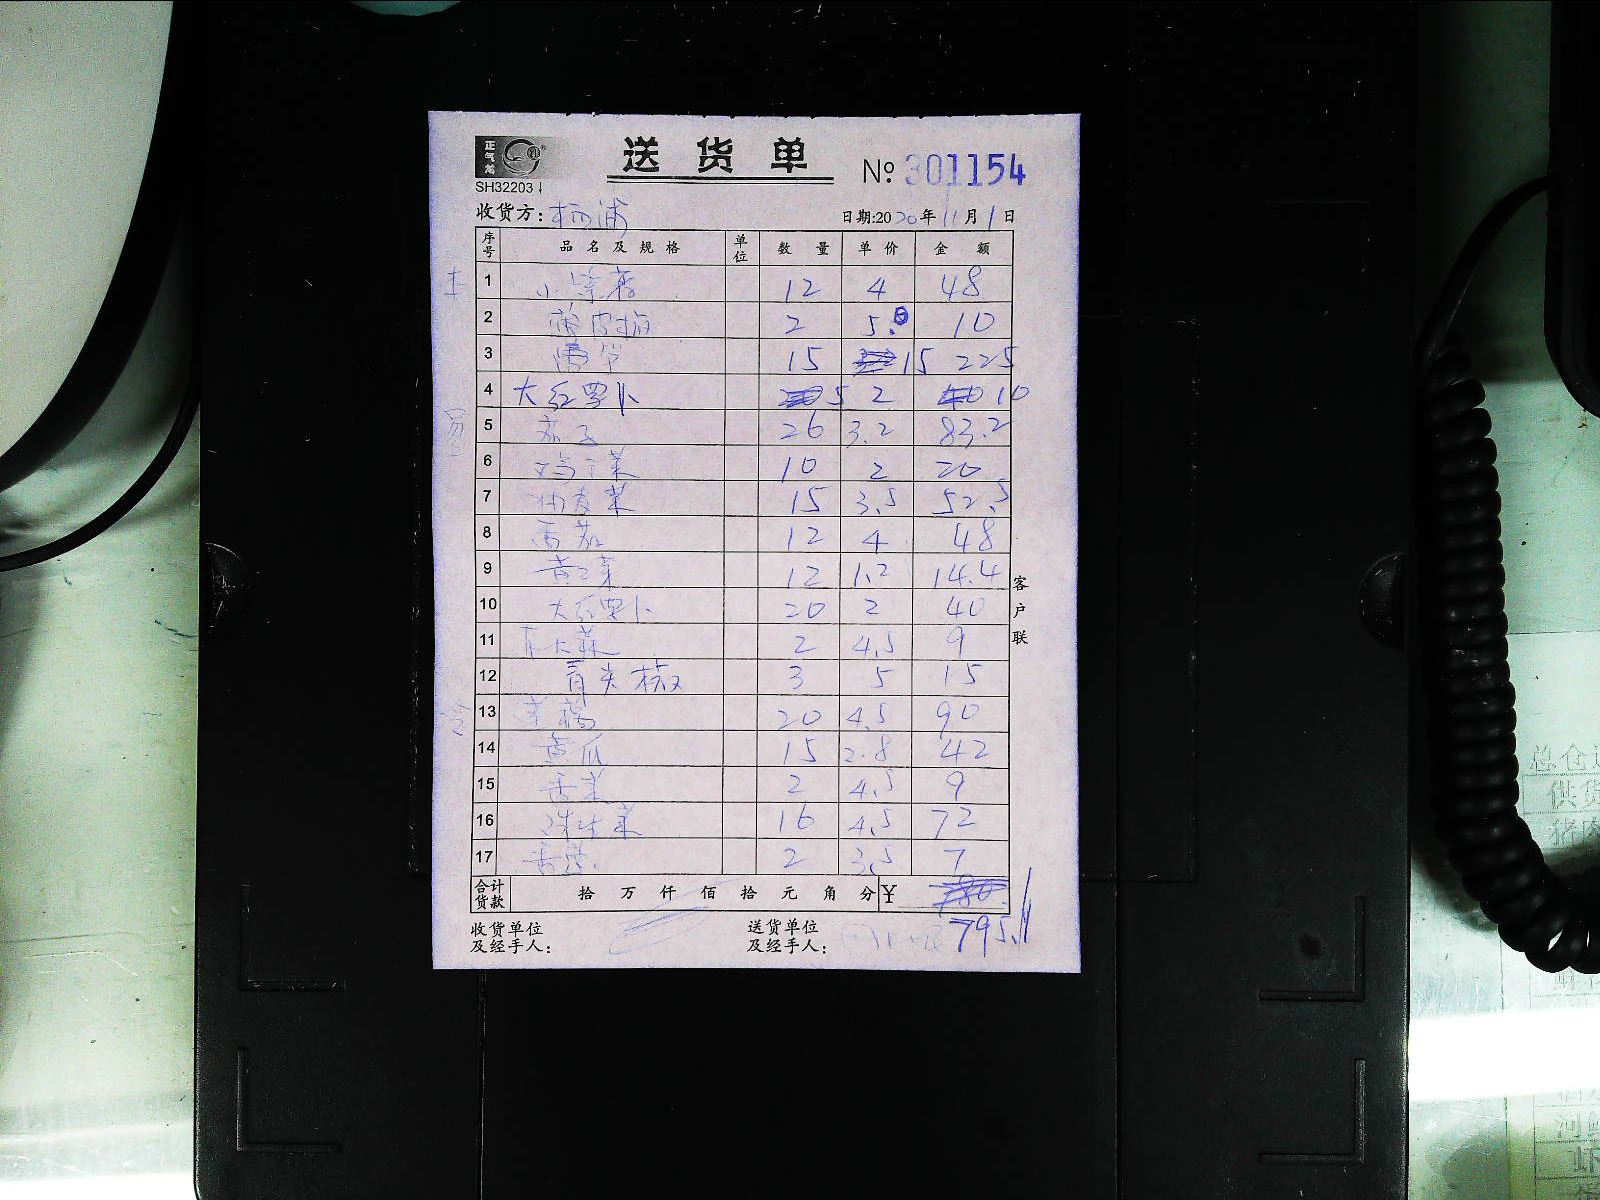 正气 送货单 № 301154
SH32203
收货方: 杨浦 日期:2020年11月1日
序号 品名及规格 单位 数量 单价 金额
1 12 4 48
2 薄皮椒 2 5. 10
3 莴笋 15 15 225
4 大红萝卜 5 2 10
5 茄子 26 3.2 83.2
6 鸡毛菜 10 2 20
7 油麦菜 15 3.5 52.5
8 番茄 12 4 48
9 黄芽菜 12 1.2 14.4
10 大红萝卜 20 2 40
11 2 4.5 9
12 青尖椒 3 5 15
13 20 4.5 90
14 黄瓜 15 2.8 42
15 香菜 2 4.5 9
16 球生菜 16 4.5 72
17 香葱 2 3.5 7
合计货款 拾 万 仟 佰 拾 元 角 分 ¥
795.1
收货单位及经手人: 送货单位及经手人:
客户联
总仓
供货
猪肉
河鲜
虾